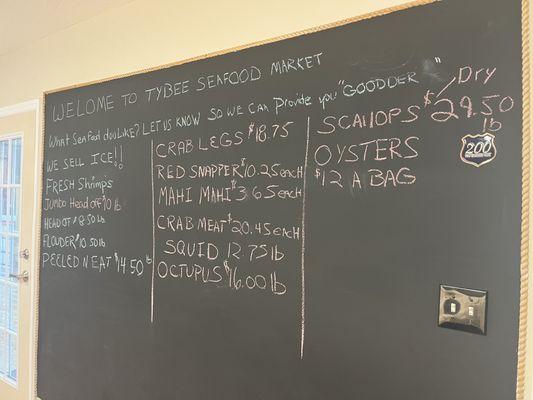 WELCOME TO TYBEE SEAFOOD MARKET
What Seafood do u Like? LET US KNOW SO WE CAN Provide you "GOODDER"
WE SELL ICE!!
FRESH Shrimps
Jumbo Head off $10 lb
HEAD OFF $8.50 lb
FLOUDER $10.50 lb
PEELED N EAT $14.50 lb
CRAB LEGS $18.75
RED SNAPPER $10.25 each
MAHI MAHI $3.65 each
CRAB MEAT $20.45 each
SQUID 12.75 lb
OCTUPUS $16.00 lb
Dry
SCALLOPS $29.50
lb
OYSTERS
$12 A BAG
200